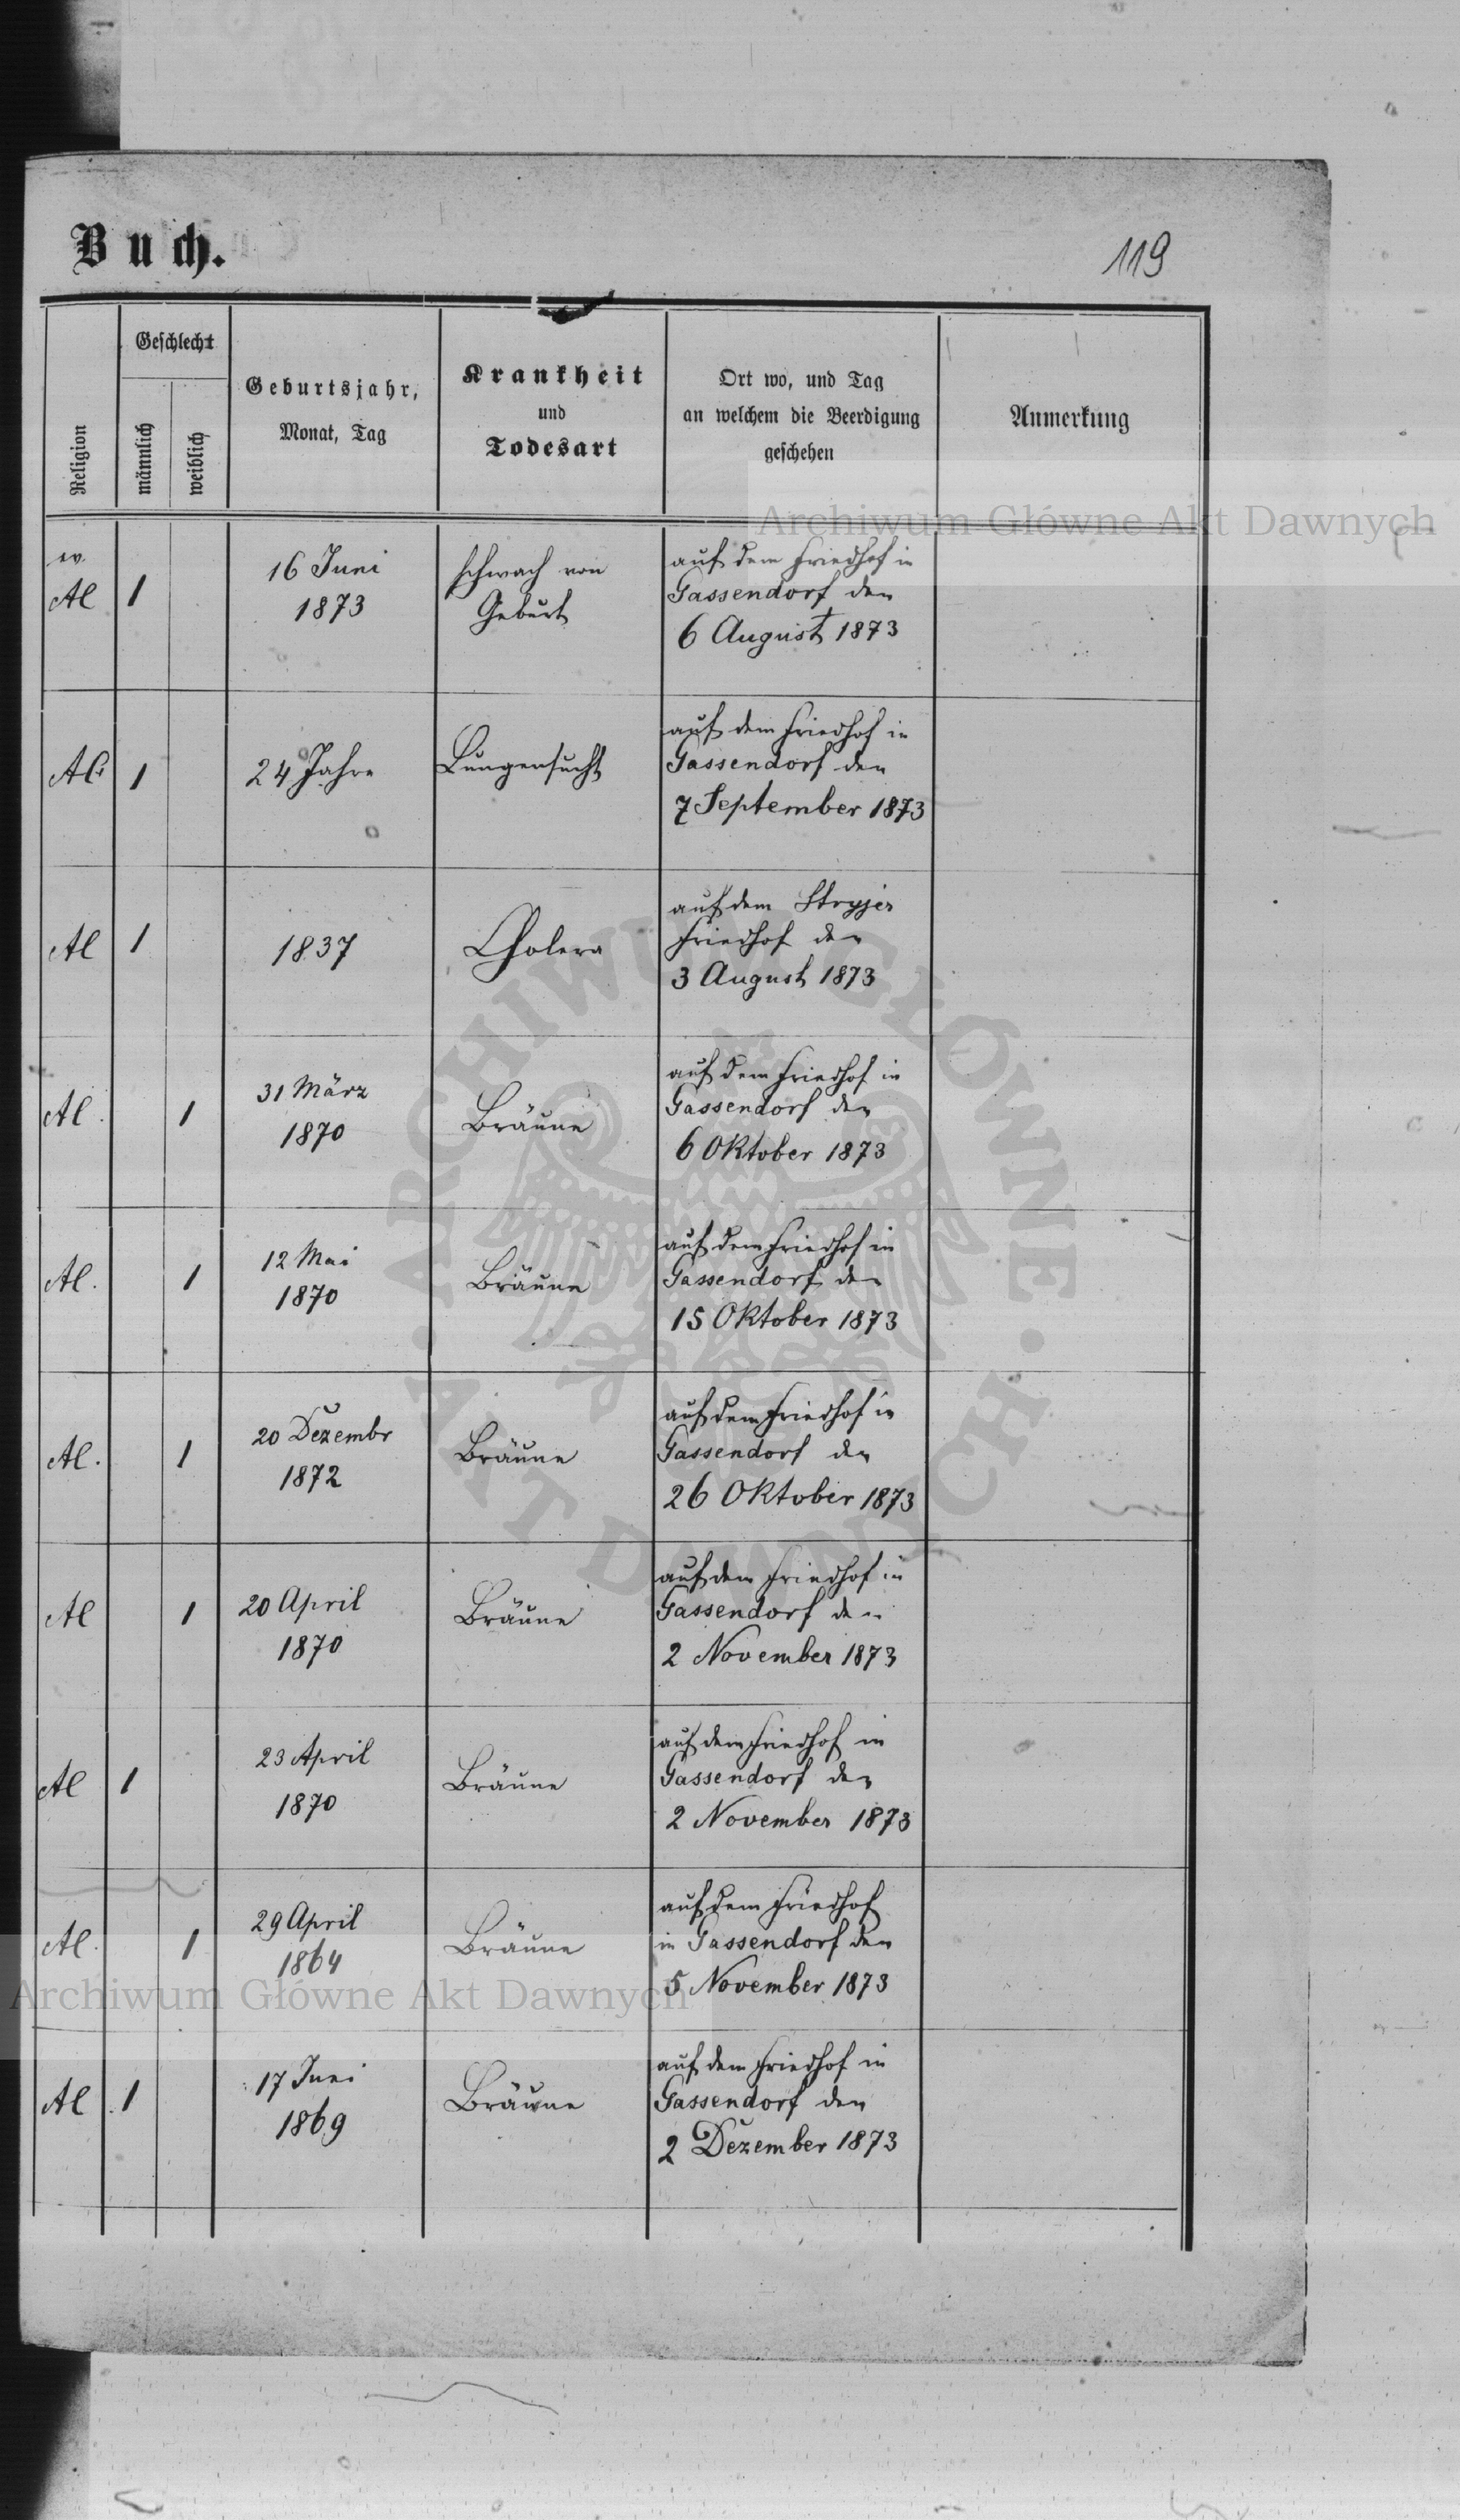 Buch.
119
Religion
Geschlecht
männlich
weiblich
Geburtsjahr,
Monat, Tag
Krankheit
und
Todesart
Ort wo, und Tag
an welchem die Beerdigung
geschehen
Anmerkung
Archiwum Główne Akt Dawnych
ev.
Al 1 16 Juni 1873 schwach von Geburt
auf dem Friedhof in
Gassendorf den
6 August 1873
Al. 1 24 Jahre Lungensucht
auf dem Friedhof in
Gassendorf den
7 September 1873
Al 1 1837 Cholera
auf dem Stryjer
Friedhof den
3 August 1873
Al. 1 31 März 1870 Bräune
auf dem Friedhof in
Gassendorf den
6 Oktober 1873
Al. 1 12 Mai 1870 Bräune
auf dem Friedhof in
Gassendorf den
15 Oktober 1873
Al. 1 20 Dezembr 1872 Bräune
auf dem Friedhof in
Gassendorf den
26 Oktober 1873
Al 1 20 April 1870 Bräune
auf dem Friedhof in
Gassendorf den
2 November 1873
Al 1 23 April 1870 Bräune
auf dem Friedhof in
Gassendorf den
2 November 1873
Al. 1 29 April 1864 Bräune
auf dem Friedhof
in Gassendorf den
5 November 1873
Archiwum Główne Akt Dawnych
Al 1 17 Juni 1869 Bräune
auf dem Friedhof in
Gassendorf den
2 Dezember 1873
ARCHIWUM GŁÓWNE
AKT DAWNYCH